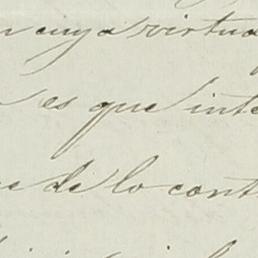 cuya virtud
es que inte
de lo cont